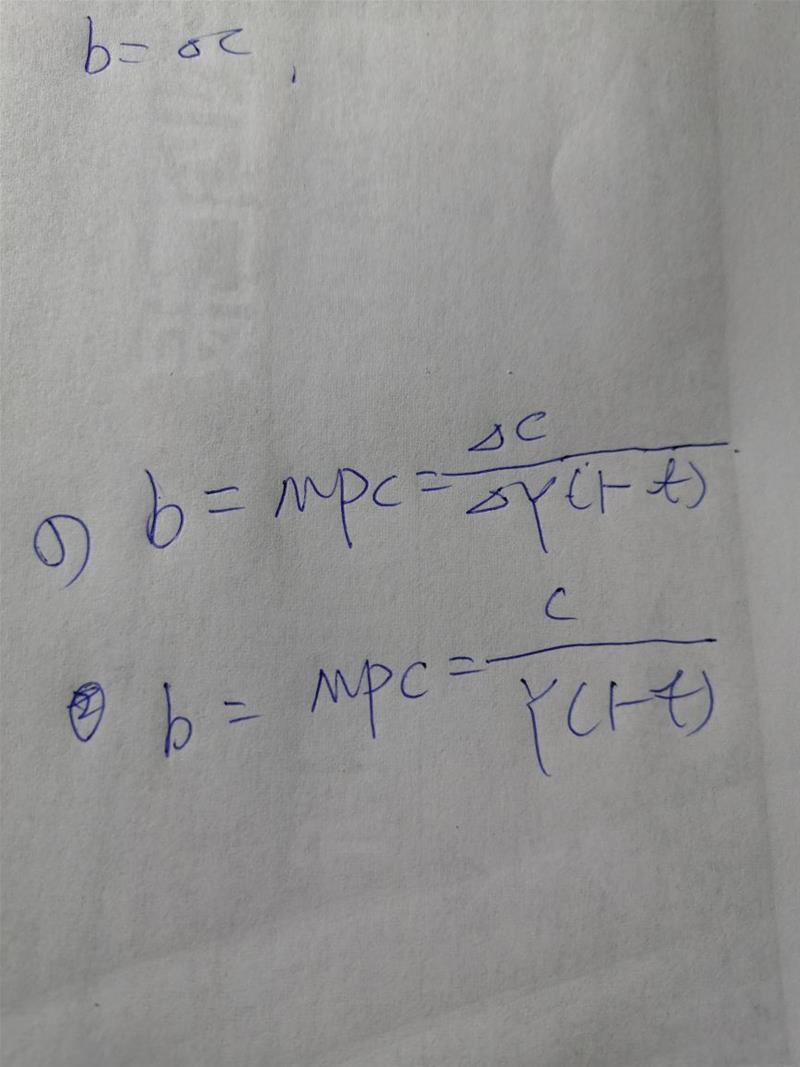 b = ΔC ,
① b = MPC = ΔC / ΔY(1-t)
② b = MPC = C / Y(1-t)